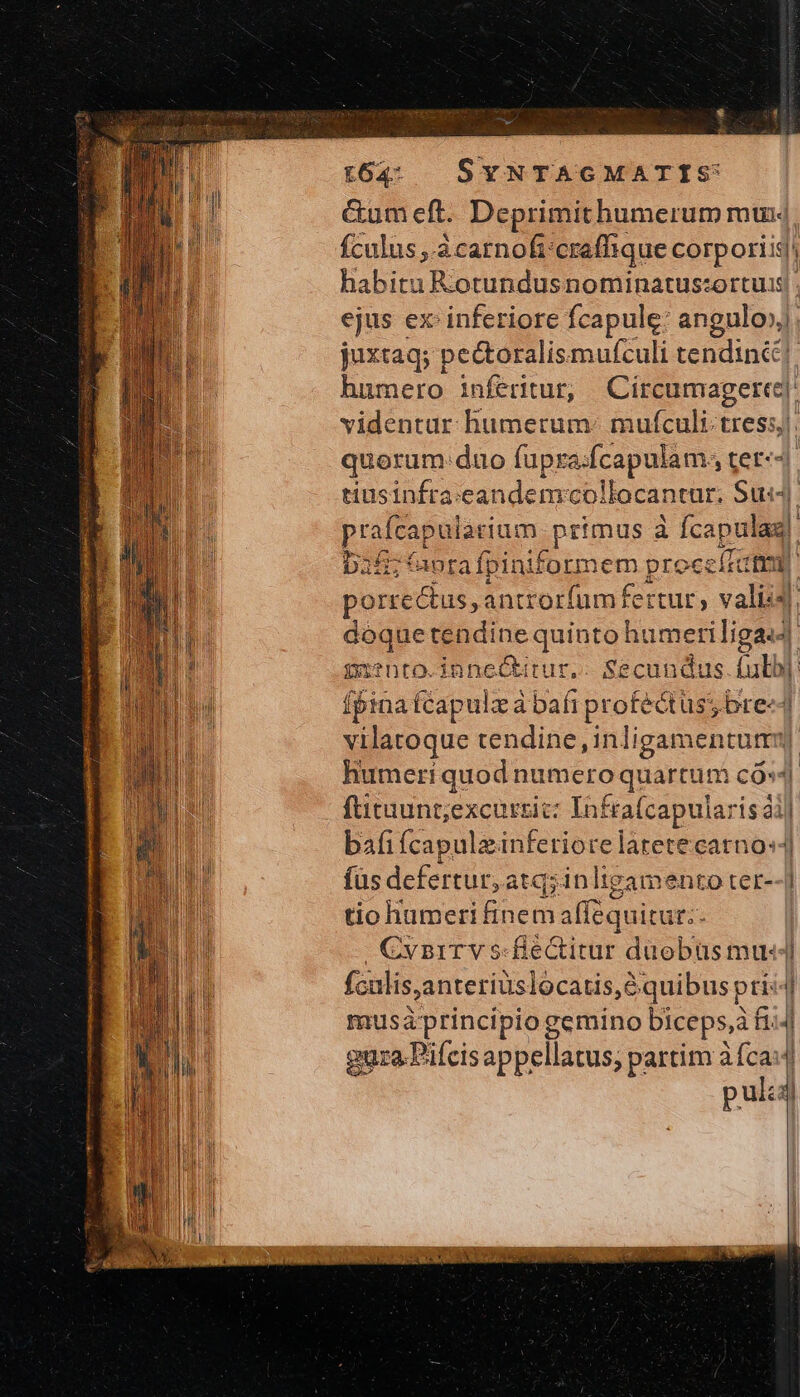 164 SYNTAGMATIS
ctum eſt. Deprimit humerum mu-
ſculus, à carnoſi craſſique corporis
habitu Rotundus nominatus: ortus
ejus ex inferiore ſcapulę angulo,
juxtaq; pectoralis muſculi tendinē
humero inſeritur, Circumagere
videntur humerum muſculi tres,
quorum duo ſupra ſcapulam, ter-
tius infra eandem collocantur. Su-
praſcapularium primus à ſcapulæ
baſi, ſupra ſpiniformem proceſſum
porrectus, antrorſum fertur, vali-
doque tendine quinto humeri liga-
mento innectitur. Secundus ſub
ſpina ſcapulæ à baſi profectus, bre-
vi latoque tendine, in ligamentum
humeri quod numero quartum cō-
ſtituunt, excurrit: Infraſcapularis à
baſi ſcapulæ inferiore latere carno-
ſus defertur, atq; in ligamento ter-
tio humeri finem aſſequitur.
CVBITVS flectitur duobus mu-
ſculis, anteriùs locatis, è quibus pri-
mus à principio gemino biceps, à fi-
gura Piſcis appellatus, partim à ſca-
pulæ